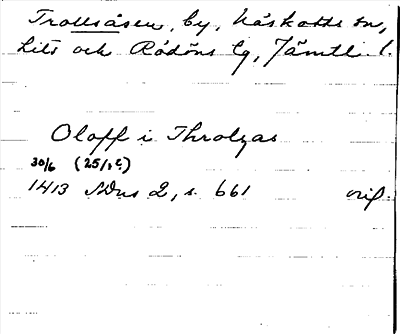 Trollsåsen, by, Näskotts sn,
Lits och Rödöns tg, Jämtl. l.
Oloff i Throlzas
30/6 (25/1 c)
1413 NDns 2, s. 661 orig.